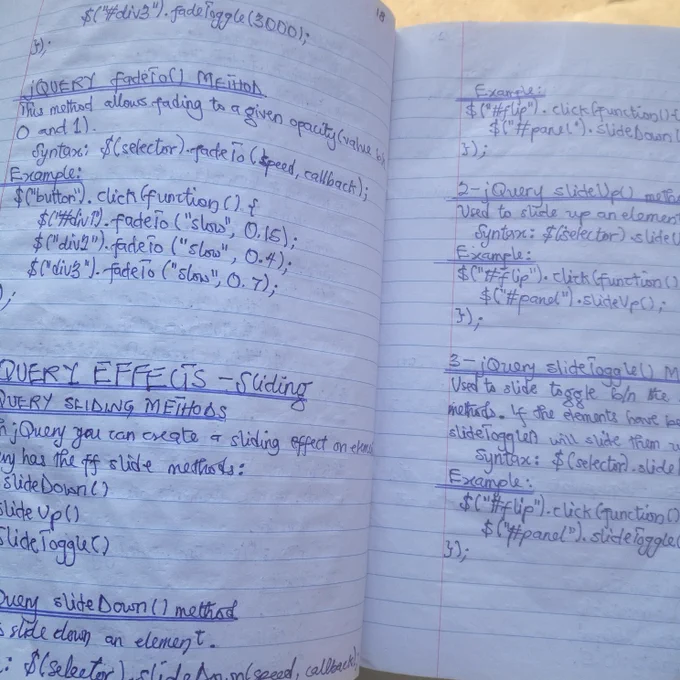 $("#div3").fadeToggle(3000);
18
});
jQUERY fadeTo() METHOD
This method allows fading to a given opacity (value b/n
0 and 1).
Syntax: $(selector).fadeTo(speed, callback);
Example:
$("button").click(function() {
$("#div1").fadeTo("slow", 0.15);
$("div2").fadeTo("slow", 0.4);
$("div3").fadeTo("slow", 0.7);
);
QUERY EFFECTS - Sliding
QUERY SLIDING METHODS
h jQuery you can create a sliding effect on elem
ry has the ff slide methods:
slideDown()
slideUp()
SlideToggle()
Query slideDown() method
slide down an element.
: $(selector).slideDown(speed, callback);
Example:
$("#flip").click(function(){
$("#panel").slideDown(
});
2-jQuery slideUp() metho
Used to slide up an element
Syntax: $(selector).slideU
Example:
$("#flip").click(function()
$("#panel").slideUp();
});
3-jQuery slideToggle() M
Used to slide toggle b/n the
methods. If the elements have be
slideToggle() will slide them
Syntax: $(selector).slide
Example:
$("#flip").click(function()
$("#panel").slideToggle(
});